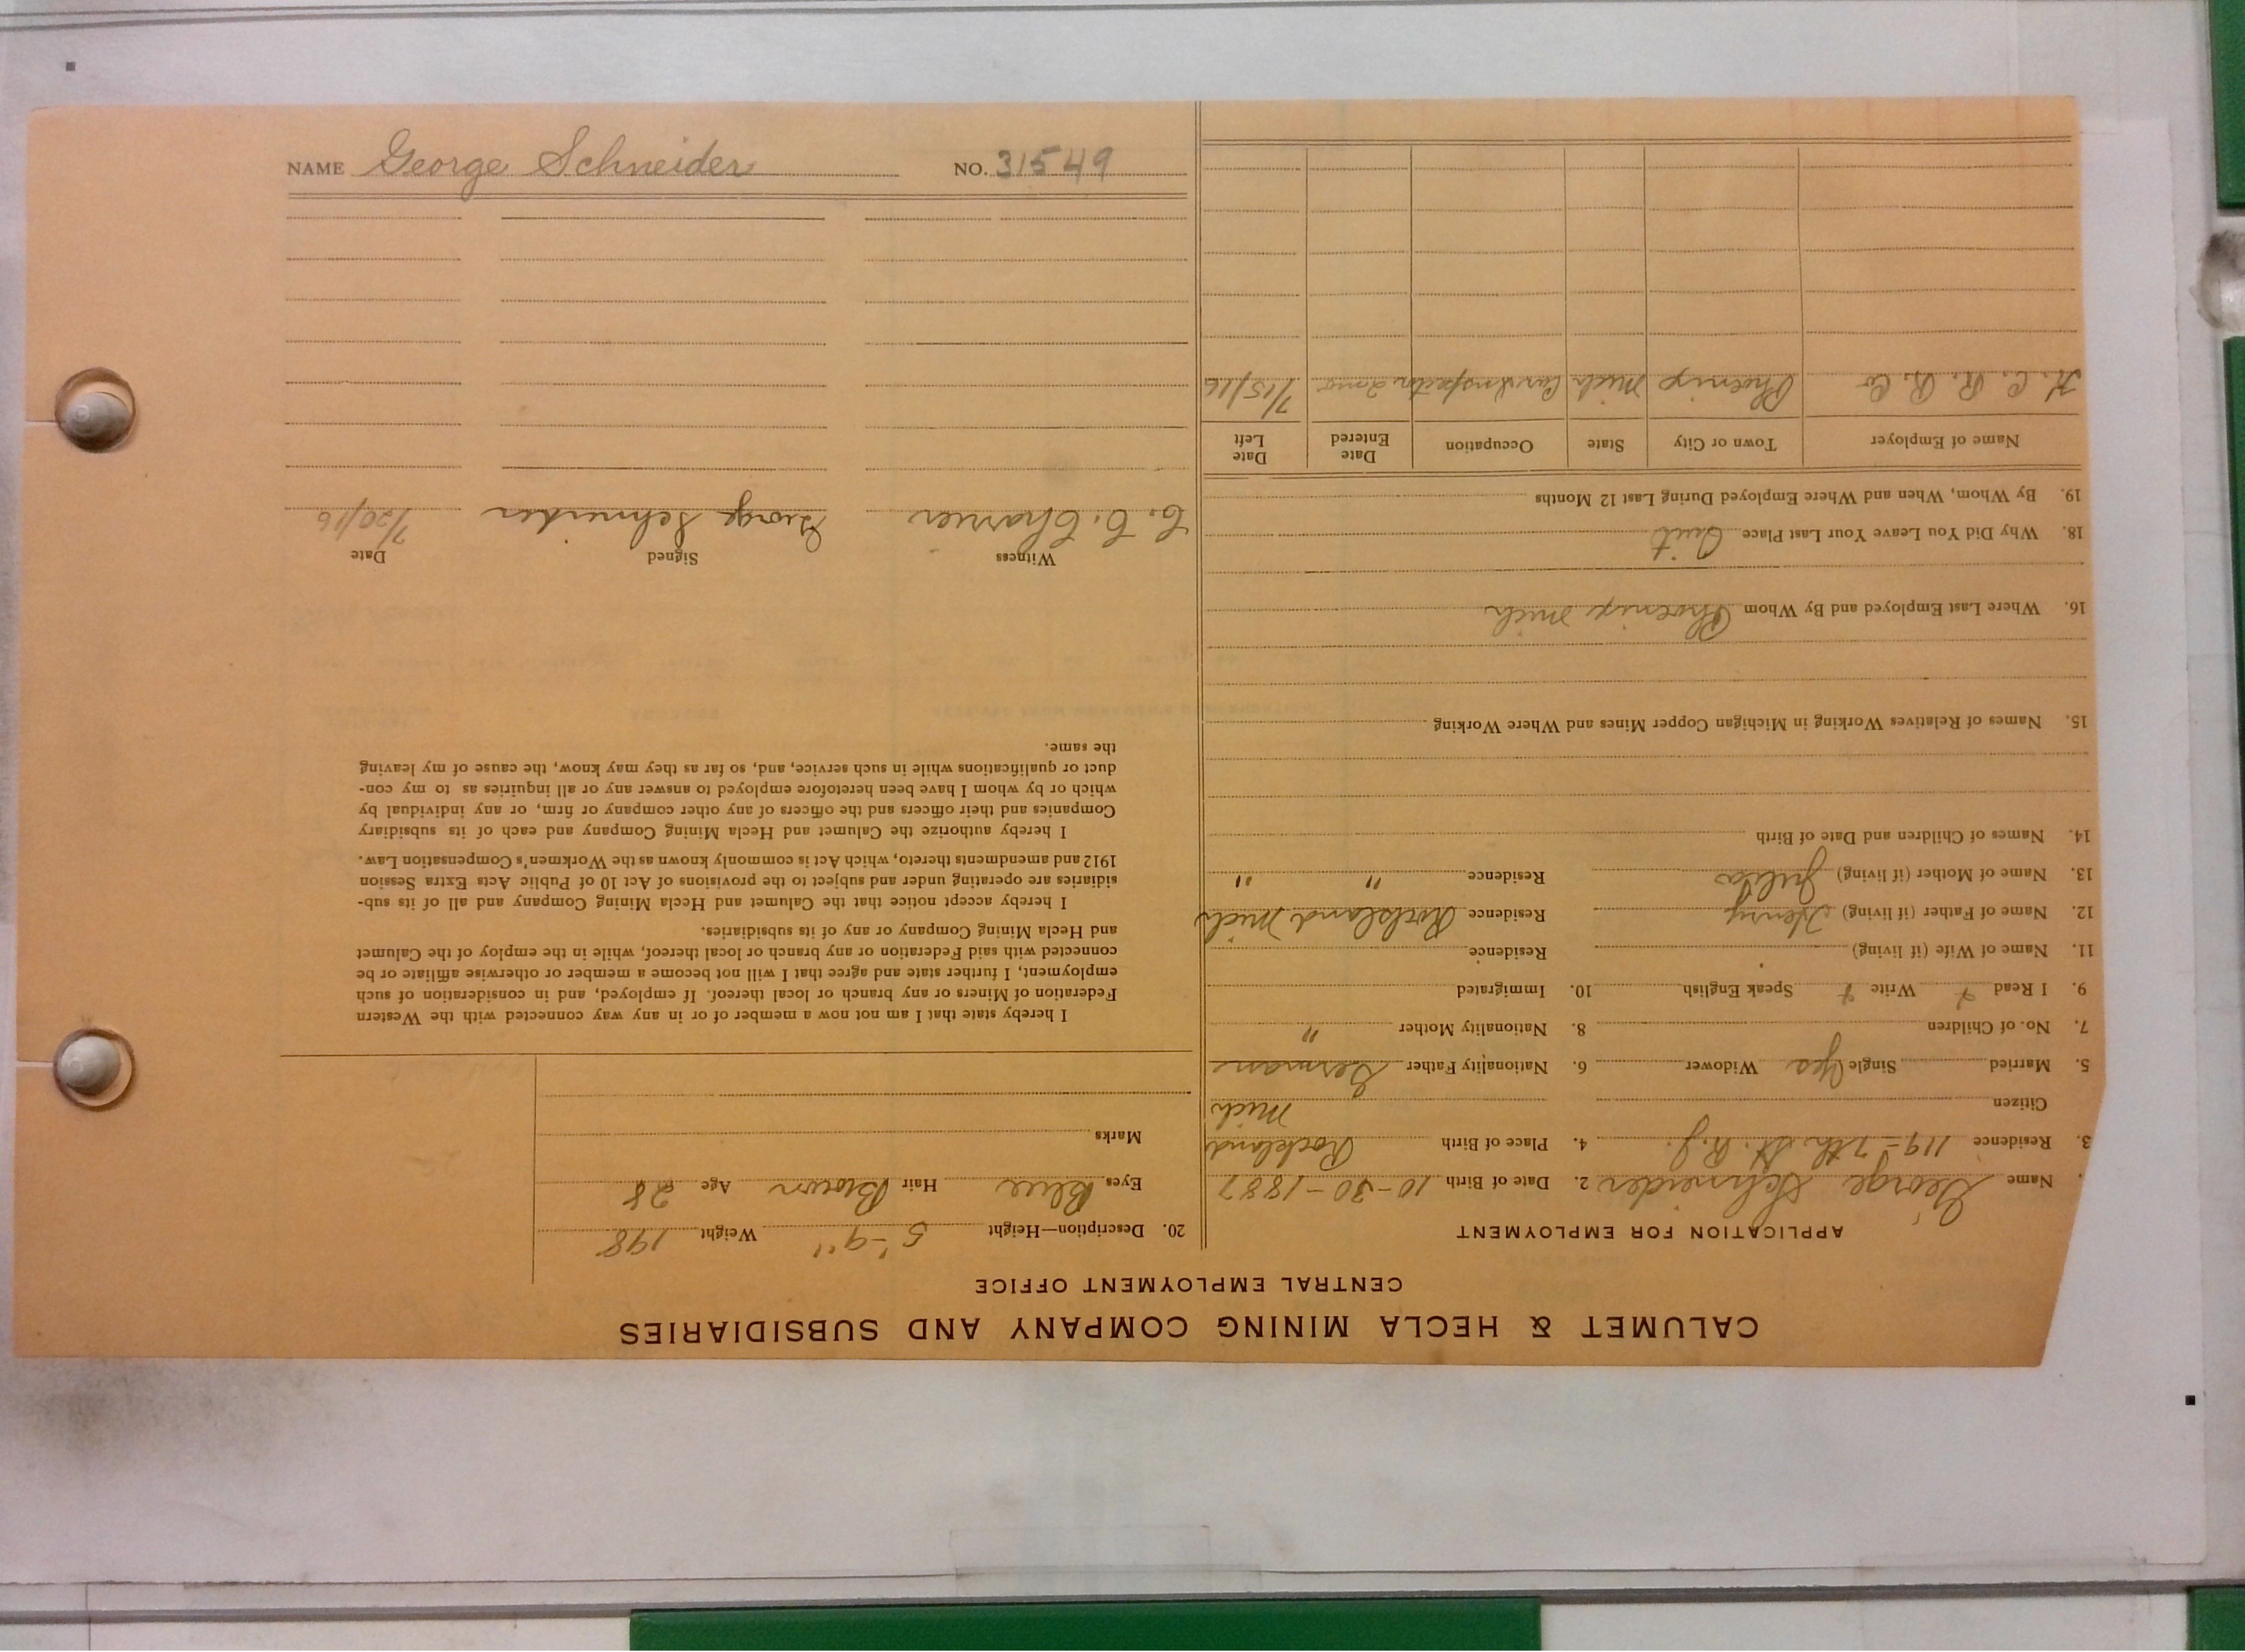 NAME George Schneider NO. 31549
CALUMET & HECLA MINING COMPANY AND SUBSIDIARIES
CENTRAL EMPLOYMENT OFFICE
APPLICATION FOR EMPLOYMENT
Name George Schneider 2. Date of Birth 10-30-1887
3. Residence 119-7th St. 4. Place of Birth Rockland
Mich
Citizen
5. Married Single Yes Widower 6. Nationality Father German
7. No. of Children 8. Nationality Mother "
9. I Read Write Speak English 10. Immigrated
11. Name of Wife (if living) Residence
12. Name of Father (if living) Henry Residence Rockland Mich
13. Name of Mother (if living) Julia Residence " "
14. Names of Children and Date of Birth
15. Names of Relatives Working in Michigan Copper Mines and Where Working
16. Where Last Employed and By Whom Phoenix Mich
18. Why Did You Leave Your Last Place Quit
19. By Whom, When and Where Employed During Last 12 Months
Name of Employer Town or City State Occupation Date Entered Date Left
K. C. R. R. Co Phoenix Mich Car Inspector 2 mo 7/15/16
20. Description—Height 5'-9" Weight 198
Eyes Blue Hair Brown Age 28
Marks
I hereby state that I am not now a member of or in any way connected with the Western
Federation of Miners or any branch or local thereof. If employed, and in consideration of such
employment, I further state and agree that I will not become a member or otherwise affiliate or be
connected with said Federation or any branch or local thereof, while in the employ of the Calumet
and Hecla Mining Company or any of its subsidiaries.
I hereby accept notice that the Calumet and Hecla Mining Company and all of its sub-
sidiaries are operating under and subject to the provisions of Act 10 of Public Acts Extra Session
1912 and amendments thereto, which Act is commonly known as the Workmen's Compensation Law.
I hereby authorize the Calumet and Hecla Mining Company and each of its subsidiary
Companies and their officers and the officers of any other company or firm, or any individual by
which or by whom I have been heretofore employed to answer any or all inquiries as to my con-
duct or qualifications while in such service, and, so far as they may know, the cause of my leaving
the same.
Witness Signed Date
C. C. Charrier George Schneider 7/20/16